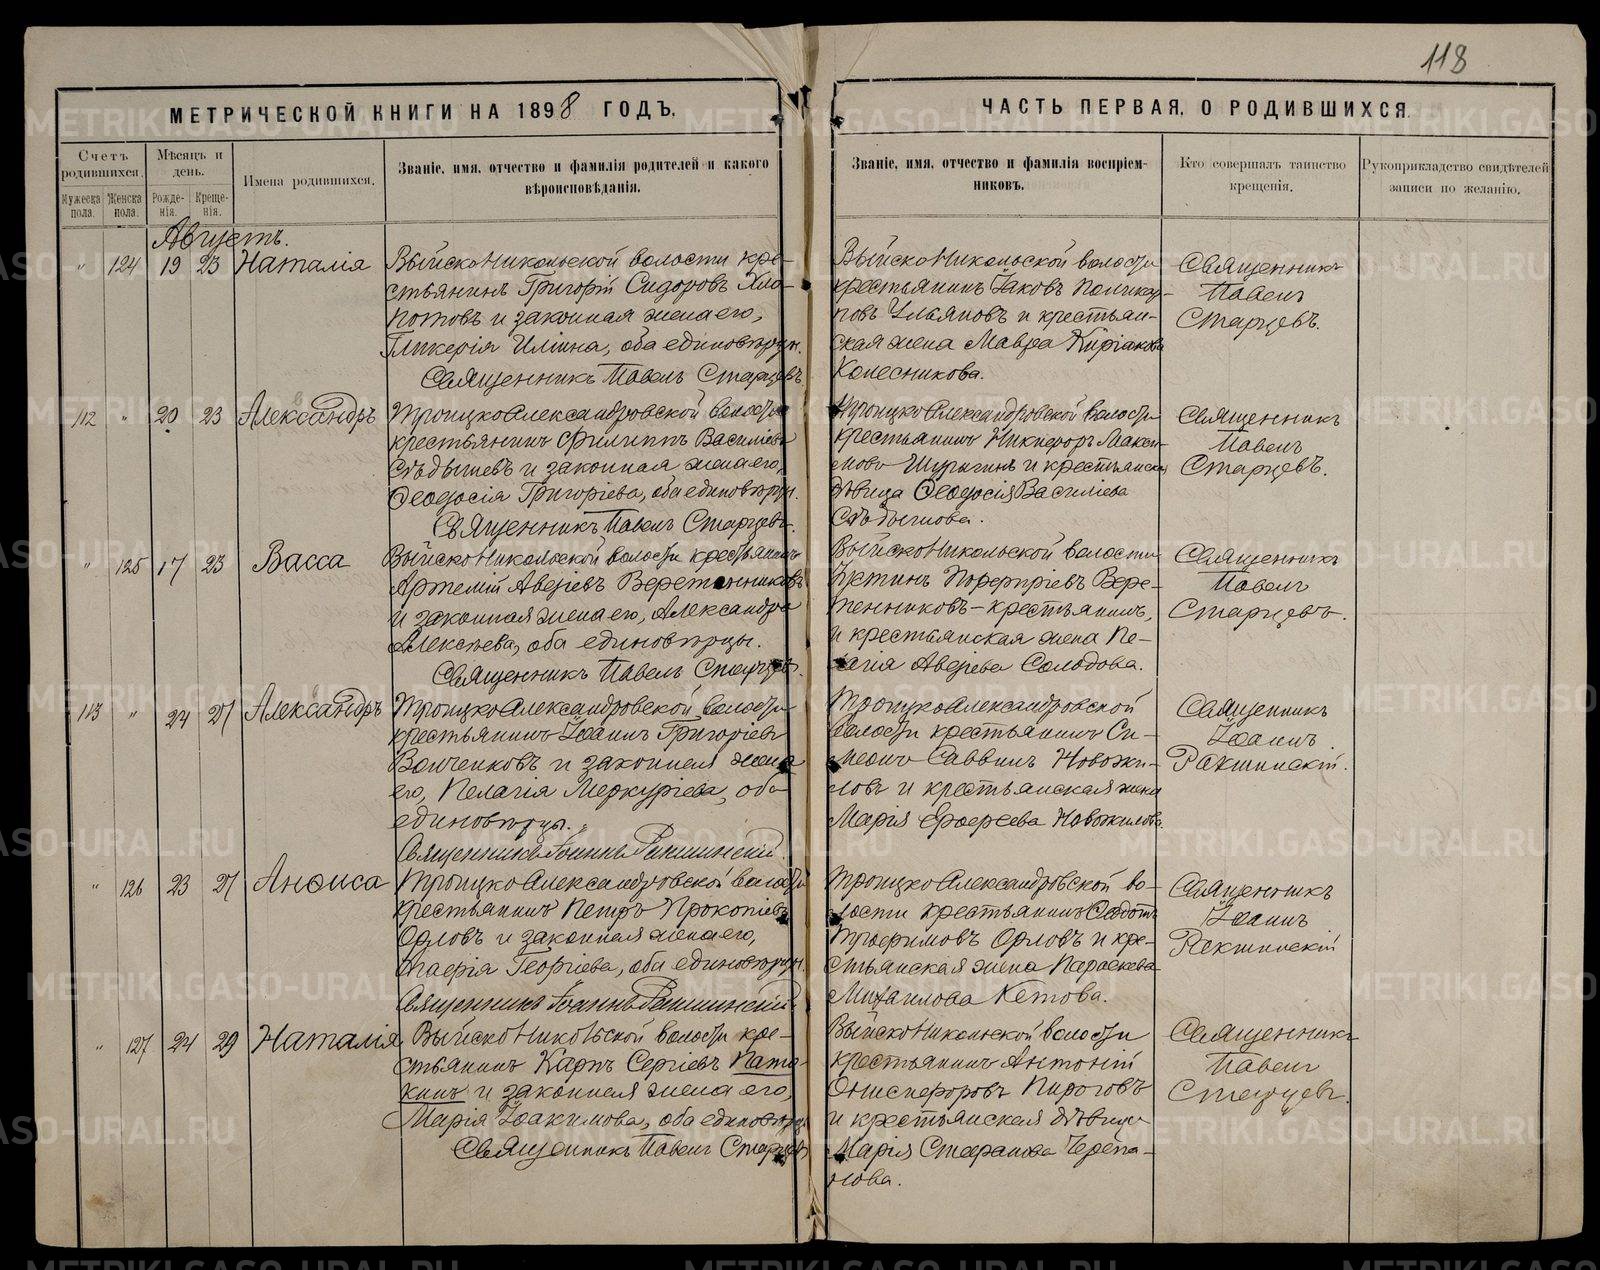 118
МЕТРИЧЕСКОЙ КНИГИ НА 1898 ГОДЪ.
ЧАСТЬ ПЕРВАЯ, О РОДИВШИХСЯ.
Счетъ родившихся.
Мѣсяцъ и день.
Имена родившихся.
Званіе, имя, отчество и фамилія родителей и какого
вѣроисповѣданія.
Мужеска пола.
Женска пола.
Рожде-нія.
Креще-нія.
Званіе, имя, отчество и фамилія воспріем-
никовъ.
Кто совершалъ таинство
крещенія.
Рукоприкладство свидѣтелей
записи по желанію.
Августъ.
" 124 19 23 Наталія
Выйско Никольской волости кре-
стьянинъ Григорій Сидоровъ Хло-
потовъ и законная жена его,
Гликерія Ильина, оба единовѣрцы.
Священникъ Павелъ Старцевъ
Выйско Никольской волости
крестьянинъ Іаковъ Поликар-
повъ Ульяновъ и крестьян-
ская жена Мавра Киріакова
Колесникова.
Священникъ
Павелъ
Старцевъ.
112 " 20 23 Александръ
Троицко Александровской волости
крестьянинъ Филиппъ Василіевъ
Сѣдышевъ и законная жена его,
Ѳеодосія Григоріева, оба единовѣрцы.
Священникъ Павелъ Старцевъ.
Троицко Александровской волости
крестьянинъ Никифоръ Макси-
мовъ Шурыгинъ и крестьянская
дѣвица Ѳеодосія Василіева
Сѣдышова.
Священникъ
Павелъ
Старцевъ.
" 125 17 23 Васса
Выйско Никольской волости крестьянинъ
Артемій Аверіевъ Веретенниковъ
и законная жена его, Александра
Алексѣева, оба единовѣрцы.
Священникъ Павелъ Старцевъ.
Выйско Никольской волости
Іустинъ Порфиріевъ Вере-
тенниковъ - крестьянинъ,
и крестьянская жена Пе-
лагія Аверіева Солодова.
Священникъ
Павелъ
Старцевъ.
113 " 24 27 Александръ
Троицко Александровской волости
крестьянинъ Іоаннъ Григоріевъ
Волченковъ и законная жена
его, Пелагія Меркуріева, оба
единовѣрцы.
Священникъ Іоаннъ Ракшинскій.
Троицко Александровской
волости крестьянинъ Си-
меонъ Саввинъ Новожи-
ловъ и крестьянская жена
Марія Ерофеева Новожилова.
Священникъ
Іоаннъ
Ракшинскій.
" 126 23 27 Анѳиса
Троицко Александровской волости
крестьянинъ Петръ Прокопіевъ
Орловъ и законная жена его,
Глафрія Георгіева, оба единовѣрцы.
Священникъ Іоаннъ Ракшинскій.
Троицко Александровской во-
лости крестьянинъ Ѳедотъ
Трофимовъ Орловъ и кре-
стьянская жена Параскева
Михаилова Кетова.
Священникъ
Іоаннъ
Ракшинскій
" 127 24 29 Наталія
Выйско Никольской волости кре-
стьянинъ Карпъ Сергіевъ Пато-
кинъ и законная жена его,
Марія Іоакимова, оба единовѣрцы
Священникъ Павелъ Старцевъ
Выйско Никольской волости
крестьянинъ Антоній
Онисифоровъ Пироговъ
и крестьянская дѣвица
Марія Стефанова Черепа-
нова.
Священникъ
Павелъ
Старцевъ.